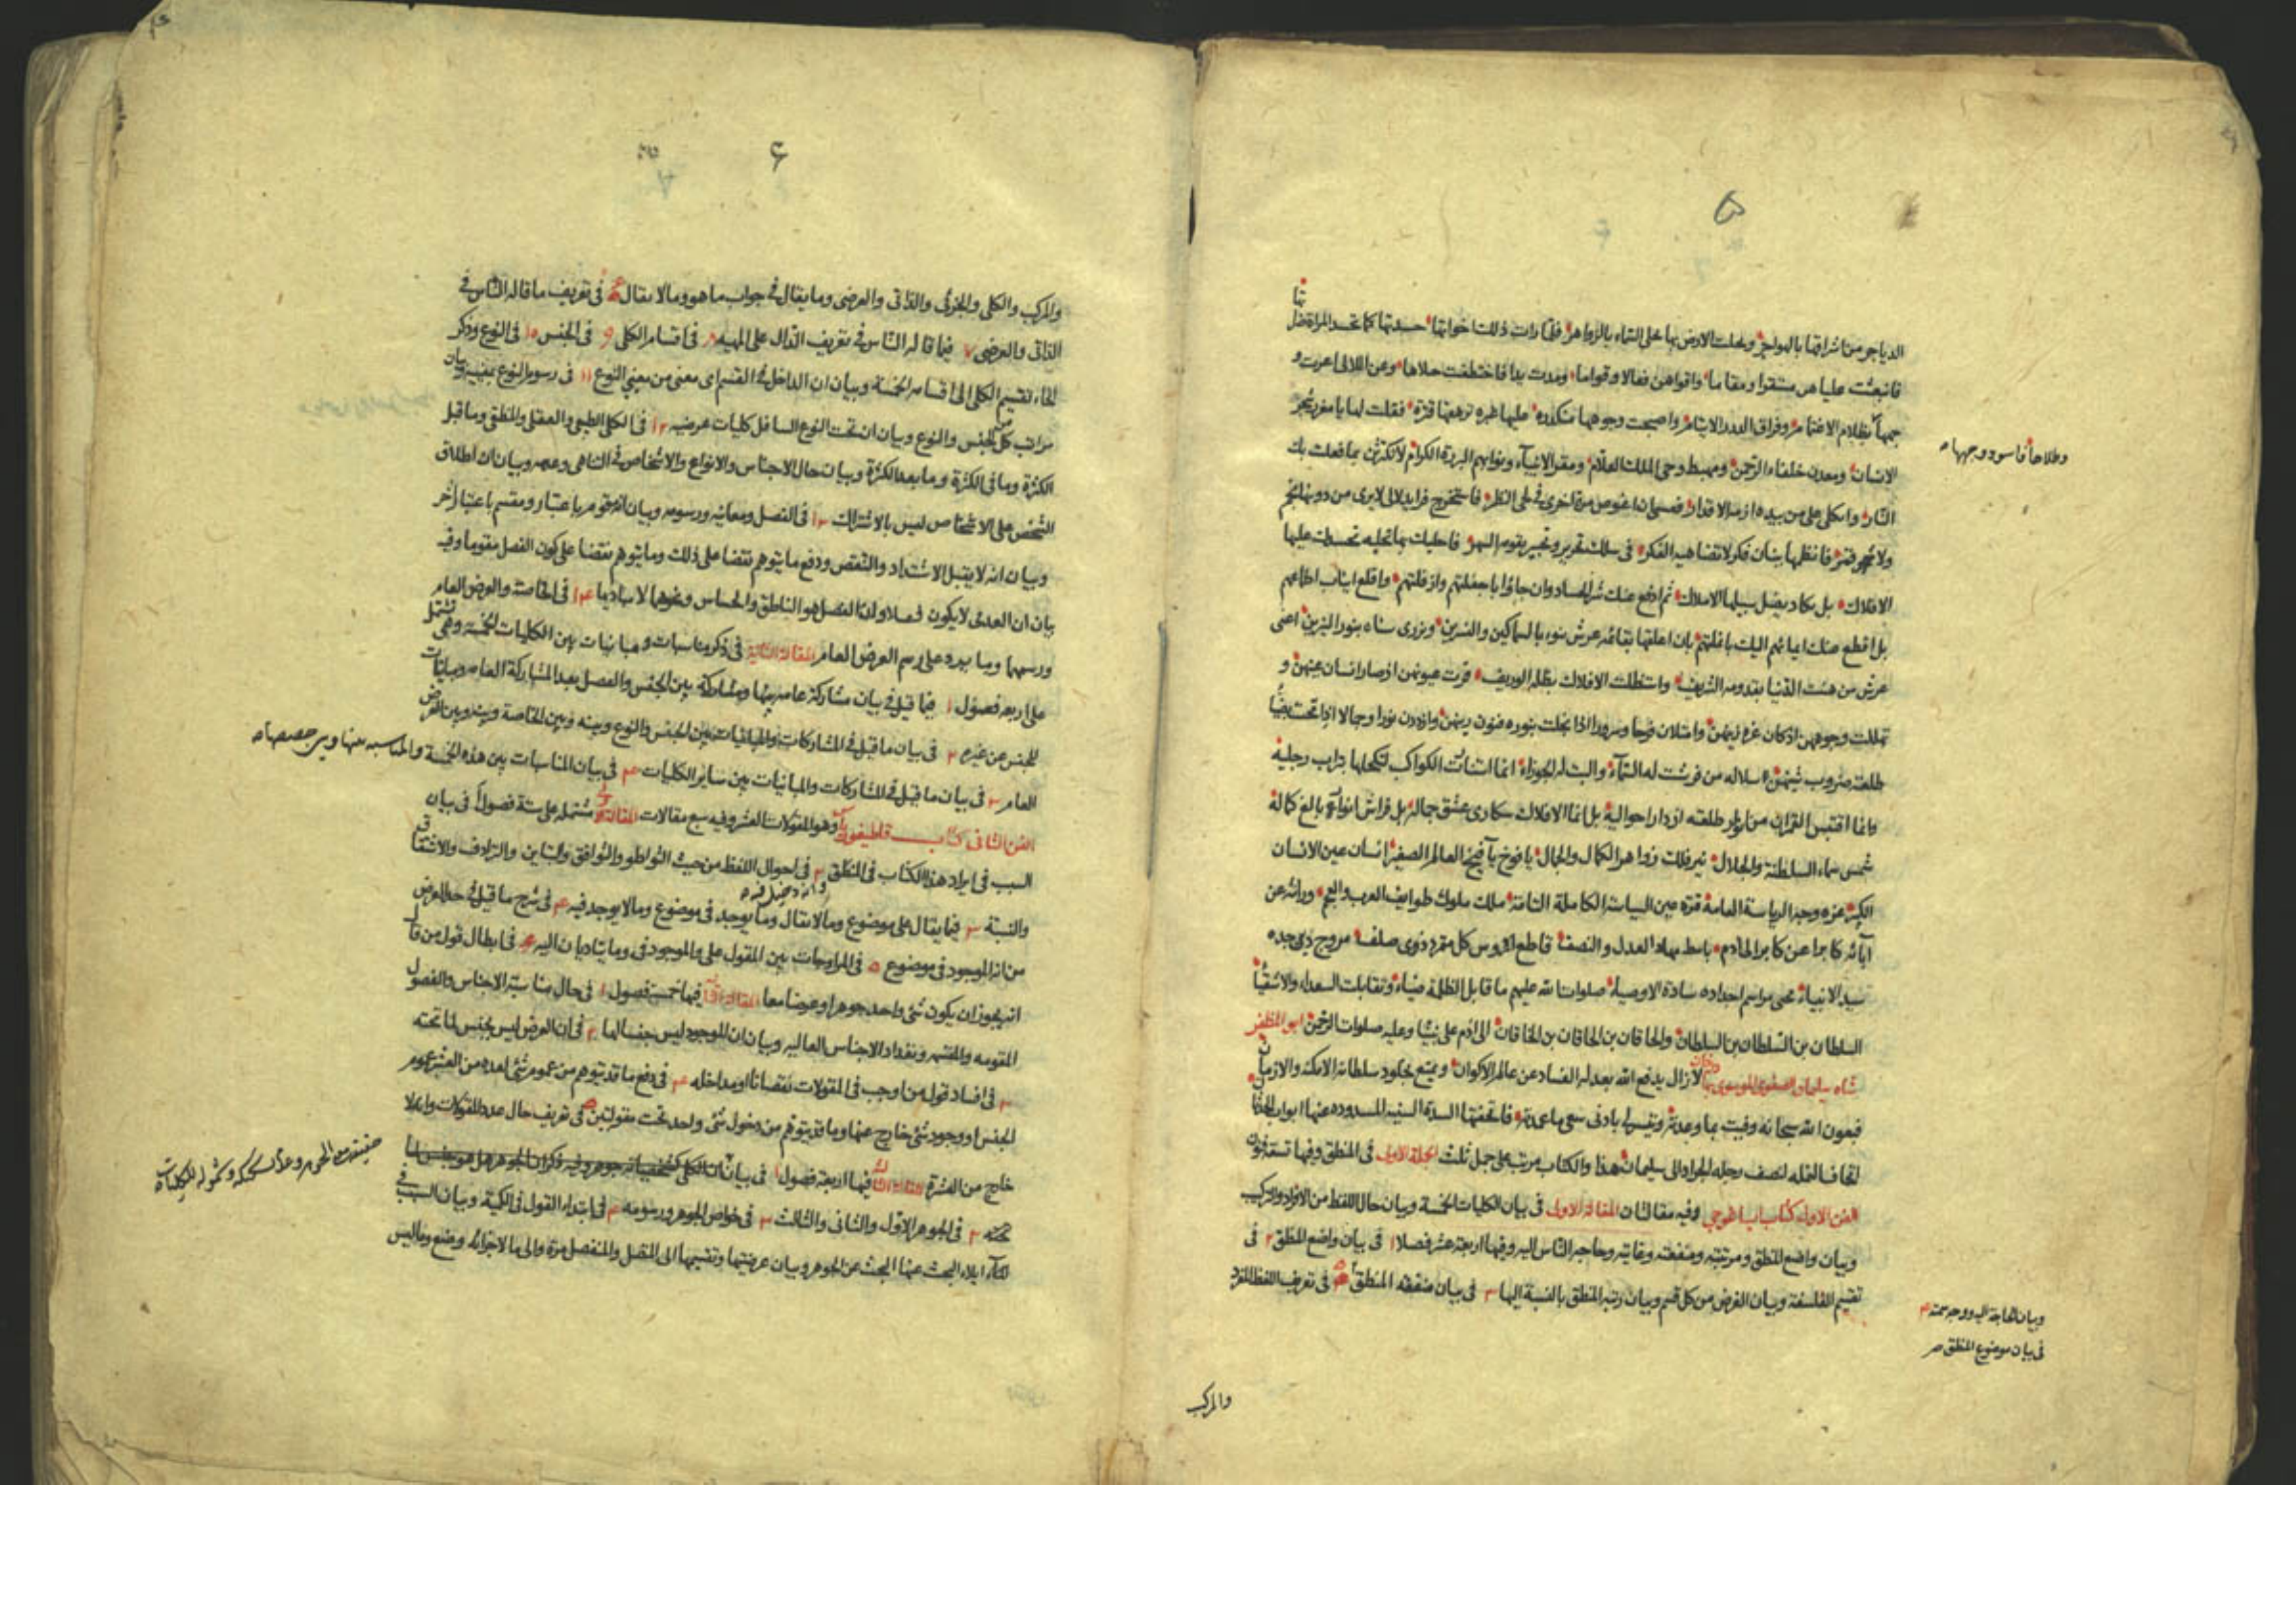 ٥
الدياجر من اشراقها بالهواجر وبحلت الارض بها على السماء بالزواهر فلما رات ذلك اخواتها حسدتها كما تحسد المراة
فانبعثت عليا هن مستقرا ومقاما واقواهن فعالا وقواما ومدت يدا فاختطفت حلاها وعن اللالى اعرت و
جهها بظلام الاغتمام وفراق الدرر الايتام واصبحت وجوهها منكدره عليها غبره ترهقها قترة فقلت لها يا مغر
الانسان ومعدن خلفاء الرحمن ومهبط وحى الملك العلام ومقر الانبياء ونوابهم البررة الكرام لا تكترثن بما فعلت بك
النار واتكلى على من بيده ازمة الاقدار فسهان اغوص مرة اخرى فى لجى النظر فاستخرج فرايد لالى لا يرى من دونها
ولا فانظمها بنان فكر لا تضاهيه الفكر فى سلك تقرير وتحبير يقوم السهر فاحليك بما تحليه تحسدك عليها
الافلاك بل يكاد يضل سبيلها الاملاك ثم ادفع عنك شر الحساد وان جاؤا بالجعفلتهم واقلع انياب اطماعهم
بل اقطع عنك اعيانهم اليك بان اعلقها بقائمه عرش ينوء بالسماكين والنسرين ويزرى سناه بنور النيرين اعنى
عرش من هنئت الدنيا بقدومه الشريف واستظلت الافلاك بظله الوريف قرت عيونهن اذ صار انسان عينهن و
تهللت وجوههن اذ كان غرة وامتلان فرحا وسرورا اذا تجلت بنوره وازددن نورا وجمالا
طلعته ضروب سلاله من فرشت له السماء والبث له الجوزاء انما انتاب الكواكب لتكحلها بتراب رجليه
وانما اقتبس القمران من انوار طلعته ازدار احواليه بل انما الافلاك سكارى عشق جماله بل فراش انوار بالغ كماله
شمس سماء السلطنة والجلال نير فلك زواهر الكمال والجمال يافوخ يآفيخ العالم الصغير انسان عين الانسان
الكبير غره وجه الرياسة العامة قرة عين السياسة الكاملة التامة ملك ملوك طوايف العرب والعجم ورائه عن
آبائه كابرا عن كابر الى آدم باسط مهاد العدل والنصف قاطع رؤس كل متمرد ذوى صلف مروج دين جده
سيد الانبياء محيى مراسم اجداده سادة الاوصياء صلوات الله عليهم ما قابل الظلمة ضياء وتقابلت السعداء والاشقياء
السلطان بن السلطان بن السلطان والخاقان بن الخاقان بن الخاقان الى آدم على نبينا وعليه صلوات الرحمن ابو المظفر
شاه سليمان الصفوى الموسوى بهادرخان لا زال يدفع الله بعدله الفساد عن عالم الاكوان ويمتع بخلود سلطانه الامكنة والازمان
فبعون الله سبحانه وفيت بما وعدته وتيسر لى بادنى سعى ما عددته فاتحفتها السدة السنية المسدوده عنها ابواب
اتحاف النمله لنصف رجله الجراد الى سليمان هذا والكتاب مرتب على جمل ثلث الجملة الاولى فى المنطق وفيها تسعة فنون
الفن الاول كتاب ايساغوجى وفيه مقالتان المقالة الاولى فى بيان الكليات الخمسة وبيان حال اللفظ من الافراد والتركيب
وبيان واضع المنطق ومرتبته ومنفعته وغايته وحاجه الناس اليه وفيها اربعة عشر فصلا ١ فى بيان واضع المنطق ٢ فى
تقسيم الفلسفة وبيان الغرض من كل قسم وبيان رتبه المنطق بالنسبة اليها ٣ فى بيان منفعة المنطق ٥ فى تعريف اللفظ المفرد
وبيان الحاجة اليه ووجه
فى بيان موضوع المنطق صح
والمركب
۶
والمركب والكلى والجزئى والذاتى والعرضى وما يقال فى جواب ما هو وما لا يقال فى تعريف ما قاله الناس فى
الذاتى والعرضى ٧ فيما قاله الناس فى تعريف الدال على المهيه ٨ فى اقسام الكلى ٩ فى الجنس ١٠ فى النوع وذكر
انحاء تقسيم الكلى الى اقسامه الخمسة وبيان ان الداخل فى القسم اى معنى من معنيى النوع ١١ فى رسوم النوع بمعنييه وبيان
مراتب كل من الجنس والنوع وبيان ان تحت النوع السافل كليات عرضيه ١٢ فى الكلى الطبيعى والعقلى والمنطقى وما قبل
الكثرة وما فى الكثرة وما بعد الكثرة وبيان حال الاجناس والانواع والاشخاص فى التناهى وعدمه وبيان ان اطلاق
الشخص على الاشخاص ليس بالاشتراك ١٣ فى الفصل ومعانيه ورسومه وبيان انه مقوم باعتبار ومقسم باعتبار آخر
وبيان انه لا يقبل الاشتداد والتنقص ودفع ما يتوهم نقضا على ذلك وما يتوهم نقضا على كون الفصل مقوما وفيه
بيان ان العدمى لا يكون فصلا وان الفصل هو الناطق والحساس ونحوهما لا مباديها ١٤ فى الخاصة والعرض العام
ورسمهما وما يرد على رسم العرض العام المقالة الثانية فى ذكر مناسبات ومباينات بين الكليات الخمسة وهى تشتمل
على اربعه فصول ١ فيما قيل فى بيان مشاركة عامه بينها ومشاركة بين الجنس والفصل بعد المشاركة العامه ومباينات
للجنس عن غيره ٢ فى بيان ما قيل فى المشاركات والمباينات بين الجنس والنوع وبينه وبين الخاصة وبينه وبين العرض
العام ٣ فى بيان ما قيل فى المشاركات والمباينات بين ساير الكليات ٤ فى بيان المناسبات بين هذه الخمسة والمناسبه بينها وبين حصصها
الفن الثانى كتاب قاطيغورياس وهو المقولات العشر وفيه سبع مقالات المقالة الاولى مشتمله على ستة فصول ١ فى بيان
السبب فى ايراد هذا الكتاب فى المنطق ٢ فى احوال اللفظ من حيث التواطؤ والتوافق والتباين والترادف والاشتقاق
والنسبة ٣ فيما يقال على موضوع وما لا يقال وما يوجد فى موضوع وما لا يوجد فيه ٤ فى شرح ما قيل فى حد العرض
من انه الموجود فى موضوع ٥ فى المزاوجات بين المقول على والموجود فى وما يتاديان اليه ٦ فى ابطال قول من قال
انه يجوز ان يكون شئ واحد جوهرا وعرضا معا المقالة الثانية فيها خمسة فصول ١ فى حال مناسبة الاجناس والفصول
المقومه والمقسمه وتعداد الاجناس العاليه وبيان ان الموجود ليس جنسا لها ٢ فى ان العرض ليس بجنس لما تحته
٣ فى افساد قول من اوجب فى المقولات نقصانا او مداخله ٤ فى دفع ما قد يتوهم من عموم شئ لعدة من العشرة عموم
الجنس او وجود شئ خارج عنها وما قد يتوهم من دخول شئ واحد تحت مقولتين ٥ فى تعريف حال عدد المقولات وان لا
خارج من العشرة المقالة الثالثة فيها اربعة فصول ١ فى بيان
٢ فى الجوهر الاول والثانى والثالث ٣ فى خواص الجوهر ورسومه ٤ فى ابتداء القول فى الكمية وبيان السبب فى
ايلاء البحث عنها البحث عن الجوهر وبيان عرضيتها وتقسيمها الى المتصل والمنفصل مرة والى ما لاجزائه وضع وما ليس